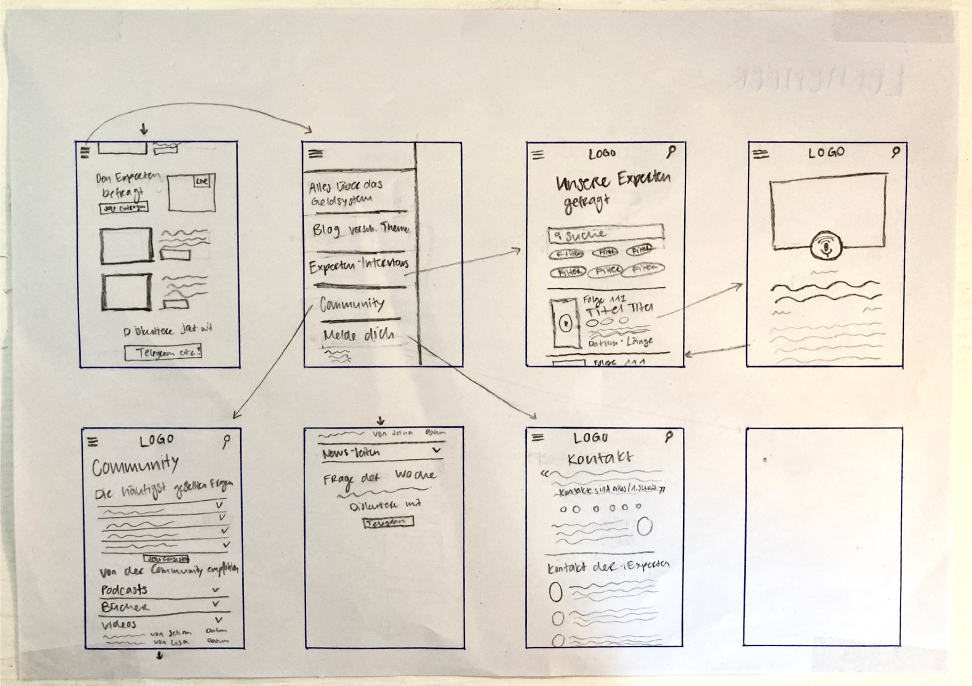 Den Experten
befragt
Live
Diskutiere jetzt mit
Telegram etc.
Alles über das
Geldsystem
Blog versch. Themen
Experten-Interviews
Community
Melde dich
LOGO
Unsere Experten
gefragt
Suche
Filter Filter Filter
Filter Filter Filter
Folge 112
Titel Titel
Datum · Länge
Folge 111
LOGO
LOGO
Community
Die häufigst gestellten Fragen
Von der Community empfohlen
Podcasts
Bücher
Videos
von Selina Datum
von Lisa Datum
von Selina Datum
News-Seiten
Frage der Woche
Diskutiere mit
Telegram
LOGO
Kontakt
Kontakt der Experten